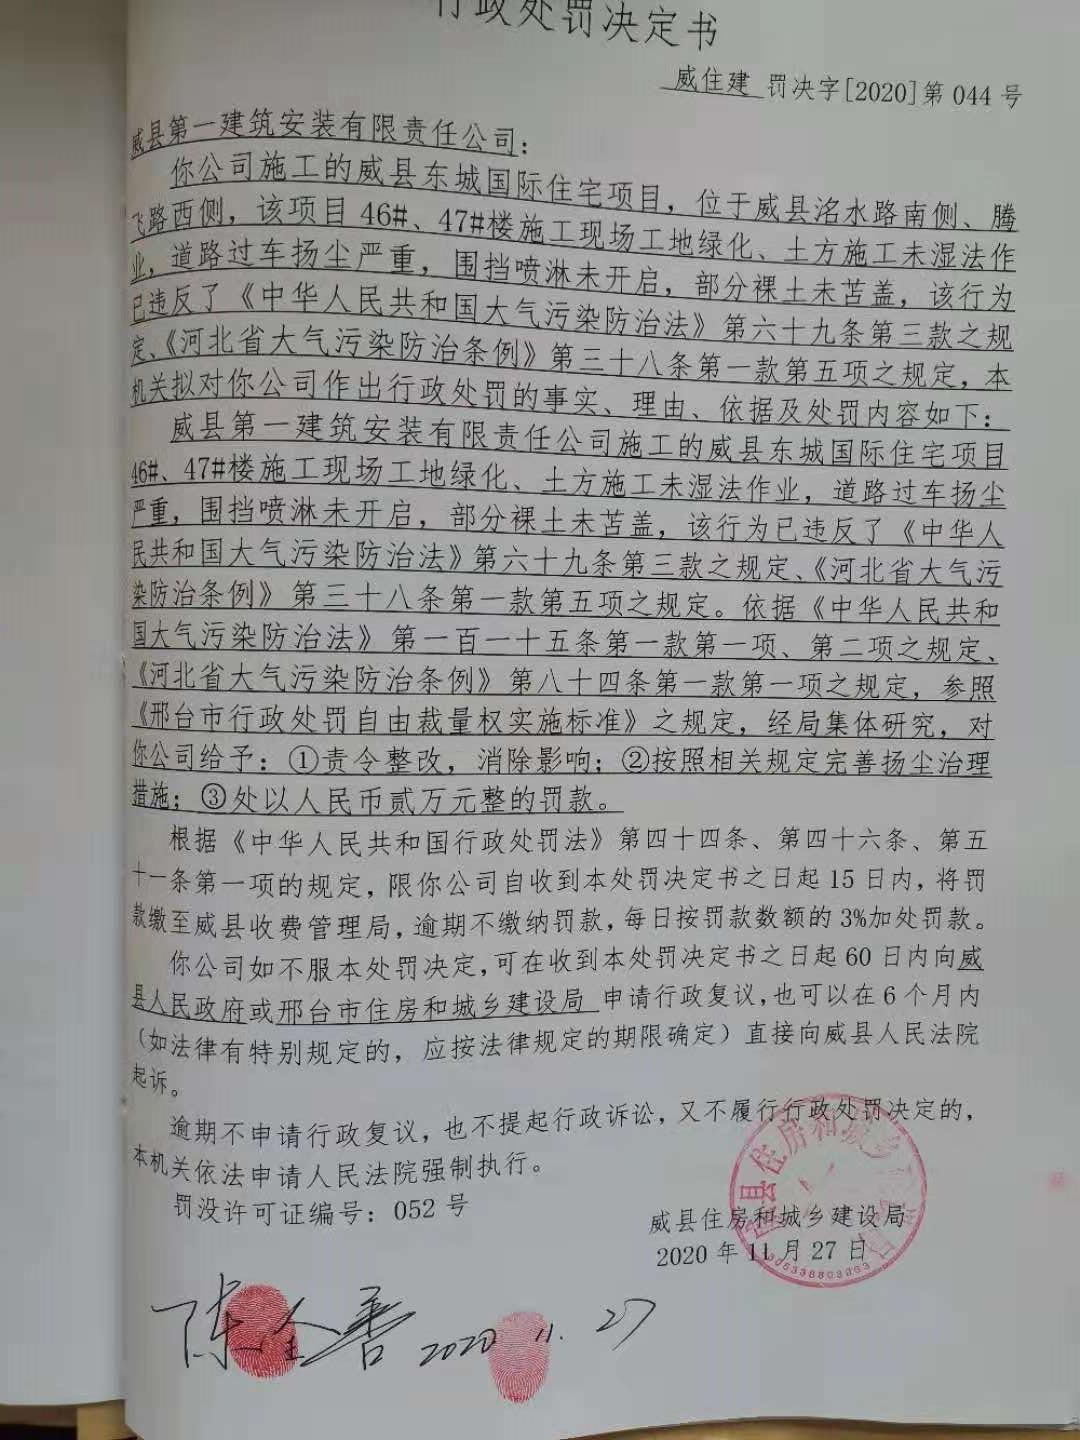 行政处罚决定书
威住建 罚决字[2020]第 044 号
威县第一建筑安装有限责任公司：
你公司施工的威县东城国际住宅项目，位于威县洺水路南侧、腾
飞路西侧，该项目 46#、47#楼施工现场工地绿化、土方施工未湿法作
业，道路过车扬尘严重，围挡喷淋未开启，部分裸土未苫盖，该行为
已违反了《中华人民共和国大气污染防治法》第六十九条第三款之规
定、《河北省大气污染防治条例》第三十八条第一款第五项之规定，本
机关拟对你公司作出行政处罚的事实、理由、依据及处罚内容如下：
威县第一建筑安装有限责任公司施工的威县东城国际住宅项目
46#、47#楼施工现场工地绿化、土方施工未湿法作业，道路过车扬尘
严重，围挡喷淋未开启，部分裸土未苫盖，该行为已违反了《中华人
民共和国大气污染防治法》第六十九条第三款之规定、《河北省大气污
染防治条例》第三十八条第一款第五项之规定。依据《中华人民共和
国大气污染防治法》第一百一十五条第一款第一项、第二项之规定、
《河北省大气污染防治条例》第八十四条第一款第一项之规定，参照
《邢台市行政处罚自由裁量权实施标准》之规定，经局集体研究，对
你公司给予：①责令整改，消除影响；②按照相关规定完善扬尘治理
措施；③处以人民币贰万元整的罚款。
根据《中华人民共和国行政处罚法》第四十四条、第四十六条、第五
十一条第一项的规定，限你公司自收到本处罚决定书之日起 15 日内，将罚
款缴至威县收费管理局，逾期不缴纳罚款，每日按罚款数额的 3%加处罚款。
你公司如不服本处罚决定，可在收到本处罚决定书之日起 60 日内向威
县人民政府或邢台市住房和城乡建设局 申请行政复议，也可以在 6 个月内
（如法律有特别规定的，应按法律规定的期限确定）直接向威县人民法院
起诉。
逾期不申请行政复议，也不提起行政诉讼，又不履行行政处罚决定的，
本机关依法申请人民法院强制执行。
罚没许可证编号：052 号
威县住房和城乡建设局
2020 年 11 月 27 日
威县住房和城乡
陈全善 2020 11. 27